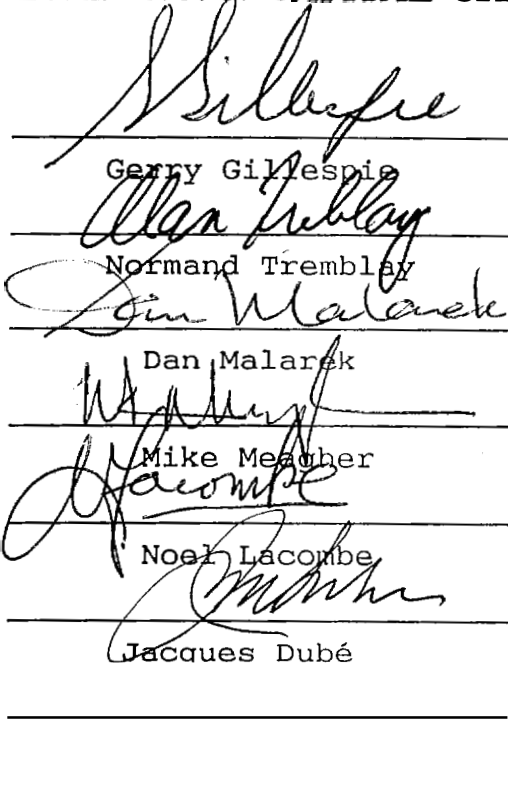 Gillespie
Gerry Gillespie
Alan Tremblay
Normand Tremblay
Dan Malarek
Dan Malarek
Mike Meagher
Lacombe
Noel Lacombe
Jacques Dubé